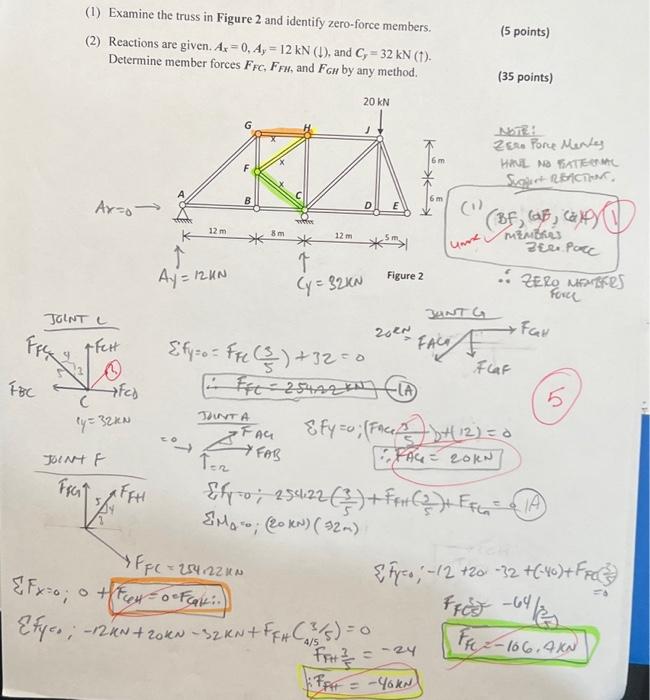 (1) Examine the truss in Figure 2 and identify zero-force members.
(5 points)
(2) Reactions are given. Ax = 0, Ay = 12 kN (↓), and Cy = 32 kN (↑).
Determine member forces FFC, FFH, and FGH by any method.
(35 points)
20 kN
G
H
J
F
A
B
C
D
E
6 m
6 m
12 m
8 m
12 m
5 m
Ax=0 →
Ay = 12KN
Cy = 32KN
Figure 2
NOTE:
ZERO Force
HAVE NO EXTERNAL
Support REACTIONS.
(1)
MEMBERS
ZERO Force
∴ ZERO MEMBERS
Force
JOINT C
FFC
FCH
FBC
FCD
C
Cy = 32KN
Σfy=0 = FFC (3/5) + 32 = 0
∴ FFC = 254.22 KN
1A
JOINT G
20KN
FAG
FGH
FGF
5
JOINT A
FAG
FAB
ΣFy=0; (FAG 3/5) + (12) = 0
∴ FAG = 20KN
JOINT F
FFG
FFH
FFC = 254.22KN
Σfy=0; 254.22 (3/5) + FFH (3/5) + FFG = 0
1A
ΣFx=0; 0 + FGH = 0 = FGH ∴
Σfy=0; -12KN + 20KN - 32KN + FFH (3/5) = 0
4/5
FFH 3/5 = -24
∴ FFH = -40KN
Σfy=0; -12 +20 -32 +(-40) + FFC (3/5) = 0
FFC 3/5 -64/
FFC = -106.7KN